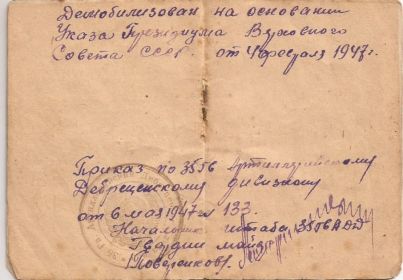 Демобилизован на основании
Указа Президиума Верховного
Совета СССР. от 4 февраля 1947г.
Приказ по 3556 Артиллерийскому
Дебреценскому дивизиону
от 6 мая 1947г 133.
Начальник штаба
Гвардии майор
/Поверенков/